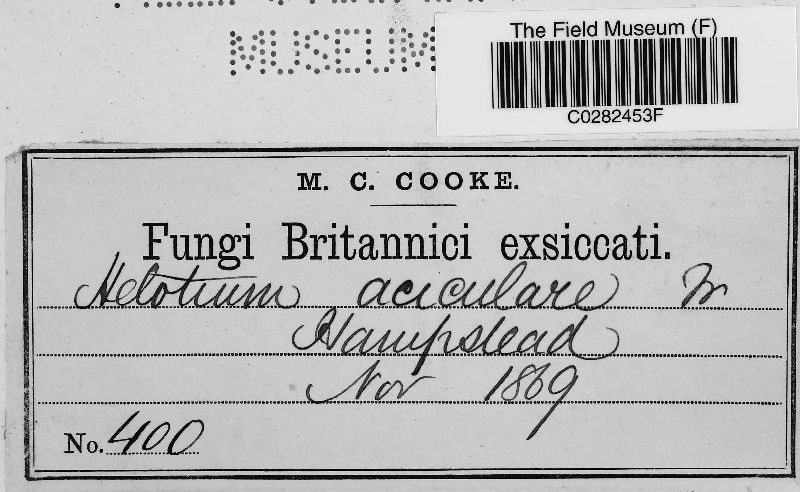 MUSEUM
The Field Museum (F)
C0282453F
M. C. COOKE.
Fungi Britannici exsiccati.
Helotium aciculare Fr
Hampstead
Nov 1869
No. 400